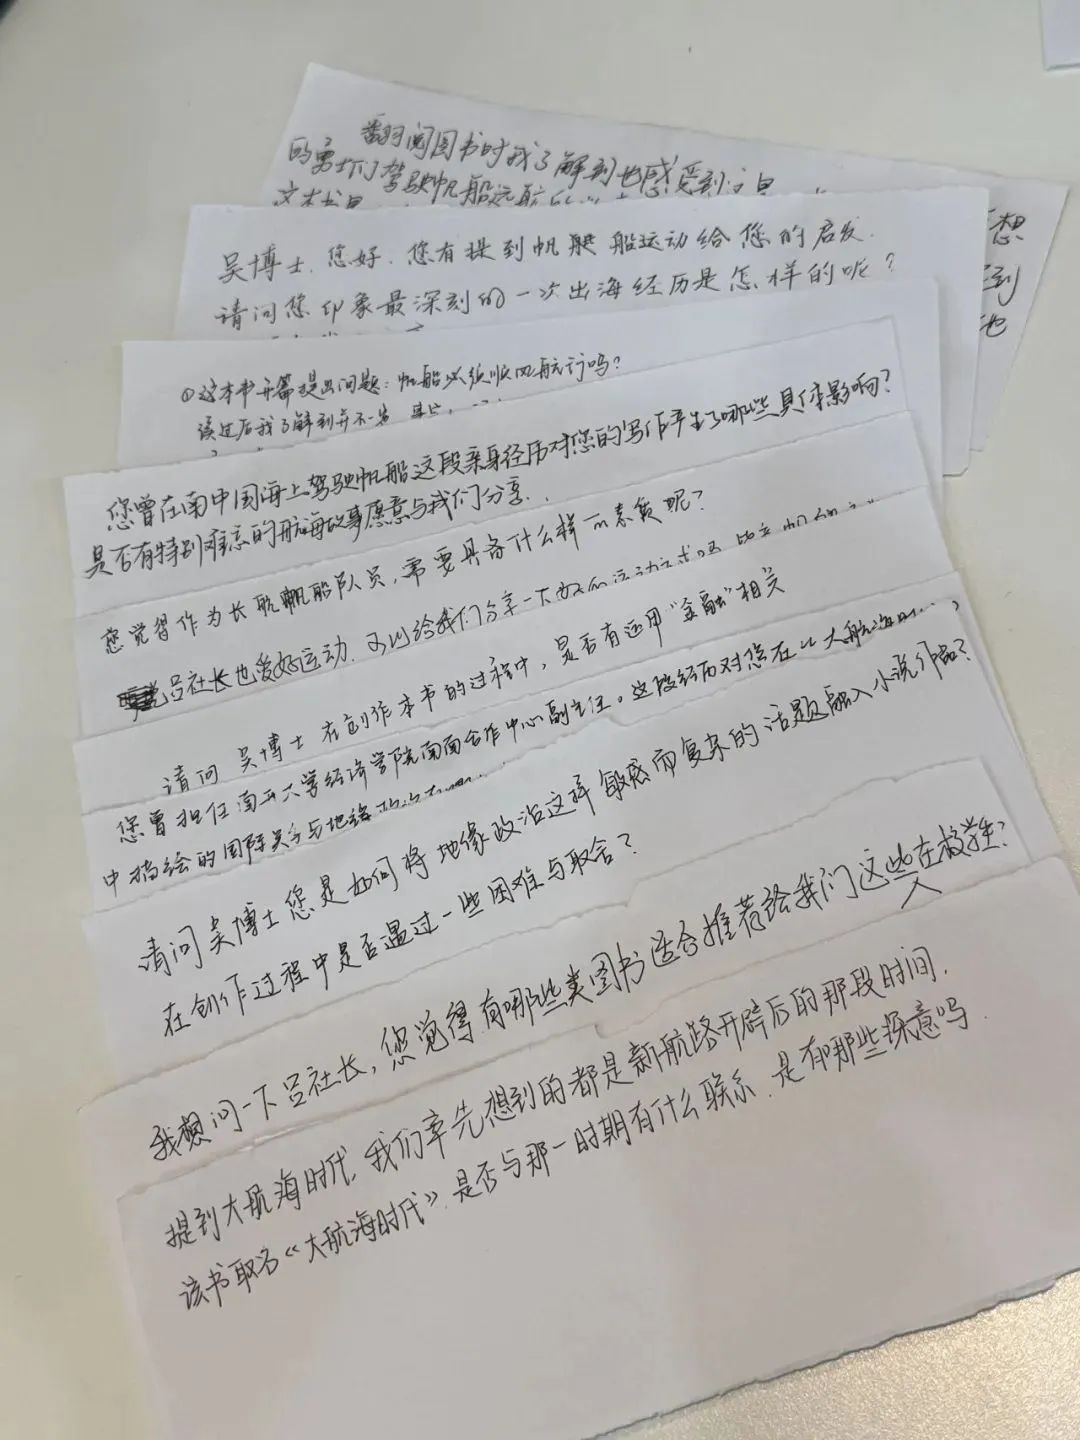 翻阅图书时我了解到也感受到
的勇士们驾驶帆船远航
这本书
想
到
也
吴博士,您好,您有提到帆艇 船运动给您的启发.
请问您印象最深刻的一次出海经历是怎样的呢?
①这本书开篇提出问题:帆船必须顺风航行吗?
读过后我了解到并不一定
您曾在南中国海上驾驶帆船这段亲身经历对您的写作产生了哪些具体影响?
是否有特别难忘的航海故事愿意与我们分享.
您觉得作为长航帆船队员,需要具备什么样的素质呢?
吕社长也爱好运动.可以给我们分享一下
请问 吴博士 在创作本书的过程中,是否有运用"金融"相关
您曾担任南开大学经济学院南南合作中心副主任。这段经历对您在《大航海时
中描绘的国际关系与地缘政治
请问吴博士您是如何将地缘政治这样敏感而复杂的话题融入小说作品?
在创作过程中是否遇过一些困难与取舍?
我想问一下吕社长,您觉得有哪些类图书适合推荐给我们这些在校学生?
提到大航海时代,我们率先想到的都是新航路开辟后的那段时间.
该书取名《大航海时代》.是否与那一时期有什么联系.是有哪些深意吗.